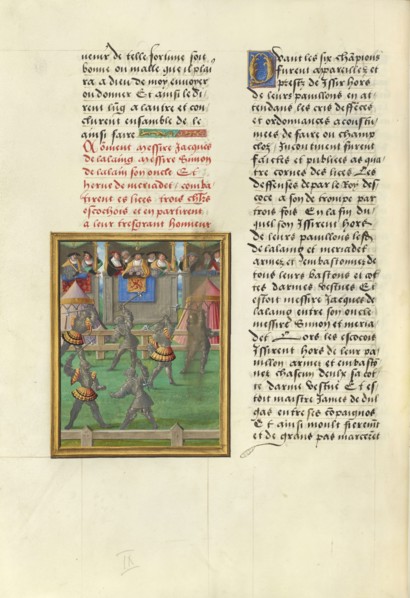 uenir de telle fortune soit
bonne ou malle que il plai
ra a dieu de moy enuoyer
ou donner Et ainsi le di
rent lūg a lautre et con
clurent ensamble de le
ainsi faire
Cōment messire Jacques
de lalaing messire Simon
de lalain son oncle Et
herue de meriadet comba
tirent es lices trois chlrs
escochois et en partirent
a leur tresgrant honneur
Quant les six chāpions
furent appareillez et
prestz de yssir hors
de leurs pauillons en at
tendans les cris deffences
et ordonnances acoustu
mees de faire ou champ
cloz Incontinent furent
faictes et publiees as qua
tre cornes des lices Les
deffenses de par le Roy des
coce a son de trompe par
trois fois En la fin du
quel son yssirent hors
de leurs pauillons les
de lalaing et meriadet
armez et embastonnez de
tous leurs bastons et cot
tes darmes vestues Et
estoit messire Jacques de
lalaing entre son oncle
messire Simon et meria
det Lors les escocois
yssirent hors de leur pa
uillon armez et embasto
nez chascun deulx sa cot
te darme vestue Et es
toit maistre James de du
glas entre ses cōpaignos
Et ainsi moult fieremēt
et de grans pas marcerēt
IX